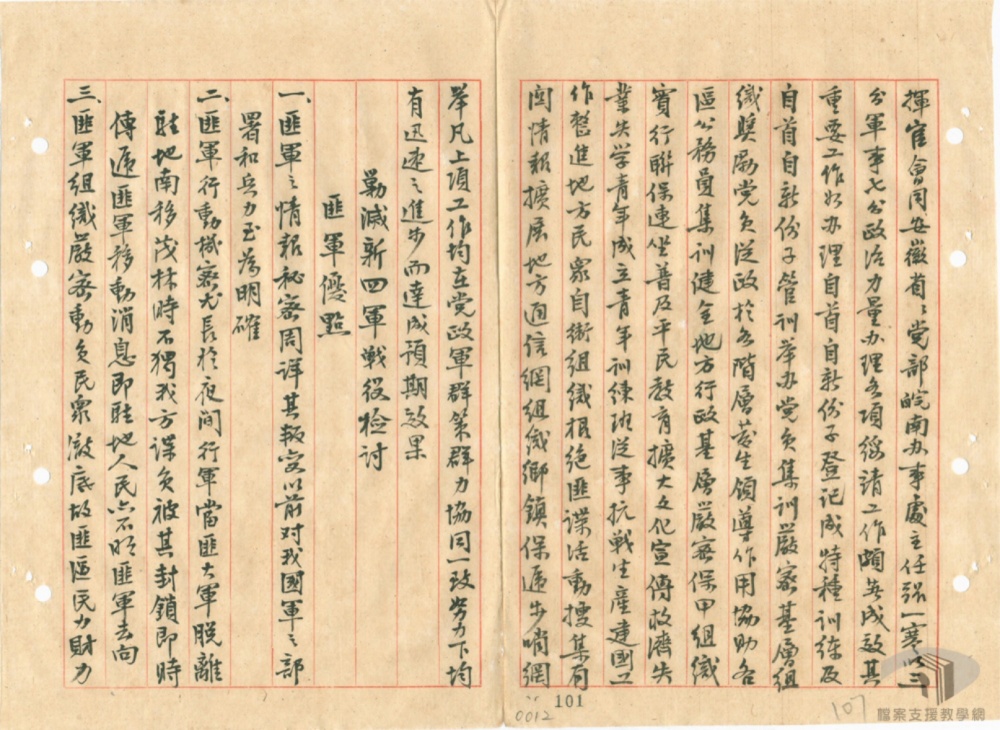 揮官會同安徽省之党部皖南办事處主任張一寒以三
分軍事七分政治力量办理各項綏靖工作頗著成效其
重要工作如办理自首自新份子登记成特種训练及
自首自新份子管训举办党员集训嚴密基層组
織奬勵党员从政於各階層发生领導作用協助各
區公務員集训健全地方行政基層嚴密保甲组織
實行聯保連坐普及平民教育擴大文化宣傳救濟失
業失学青年成立青年训練班從事抗戰生產建國工
作整進地方民眾自衛组織根绝匪諜活動搜集有
関情報擴展地方通信網组織鄉鎮保递步哨網
举凡上項工作均在党政軍群策群力協同一致努力下均
有迅速之進步而達成預期效果
勦滅新四軍戰役檢讨
匪軍優點
一、匪軍之情報秘密周详其叛变以前对我國軍之部
署和兵力至為明確
二、匪軍行動機密尤長於夜间行軍當匪大軍脫離
駐地南移茂林時不獨我方谍员被其封鎖即時
傳遞匪軍移動消息即駐地人民亦不明匪軍去向
三、匪軍组織嚴密動员民眾澈底故匪區民力財力
101
0012
107
檔案支援教學網